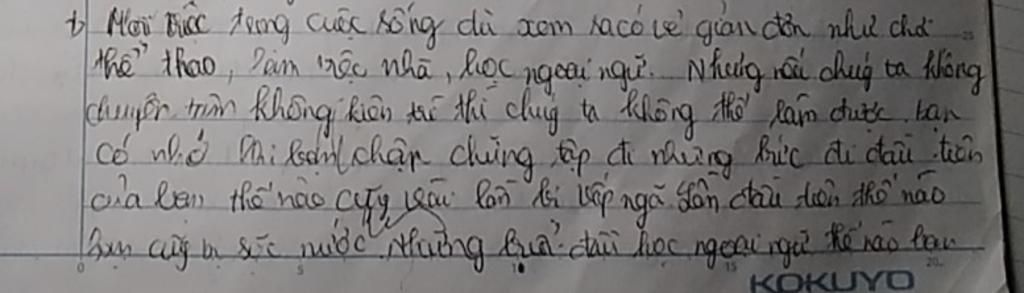 b) Mọi việc trong cuộc sống dù xem ra có vẻ giản đơn như chơi
thể thao, làm việc nhà, học ngoại ngữ. Nhưng nếu chúng ta không
chuyên tâm không kiên trì thì chúng ta không thể làm được. bạn
có nhớ khi bạn chập chững tập đi những bước đi đầu tiên
của bạn thế nào cũng vài lần bị vấp ngã lần đầu tiên thế nào
bạn cũng bị sặc nước. Những buổi đầu học ngoại ngữ thế nào bạn
0 5 10 15 20
KOKUYO